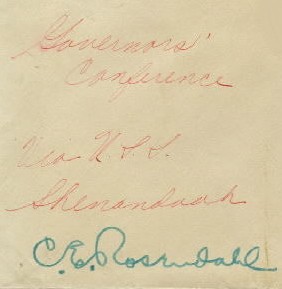 Governors'
Conference
Via U.S.S.
Shenandoah
C.E. Rosendahl